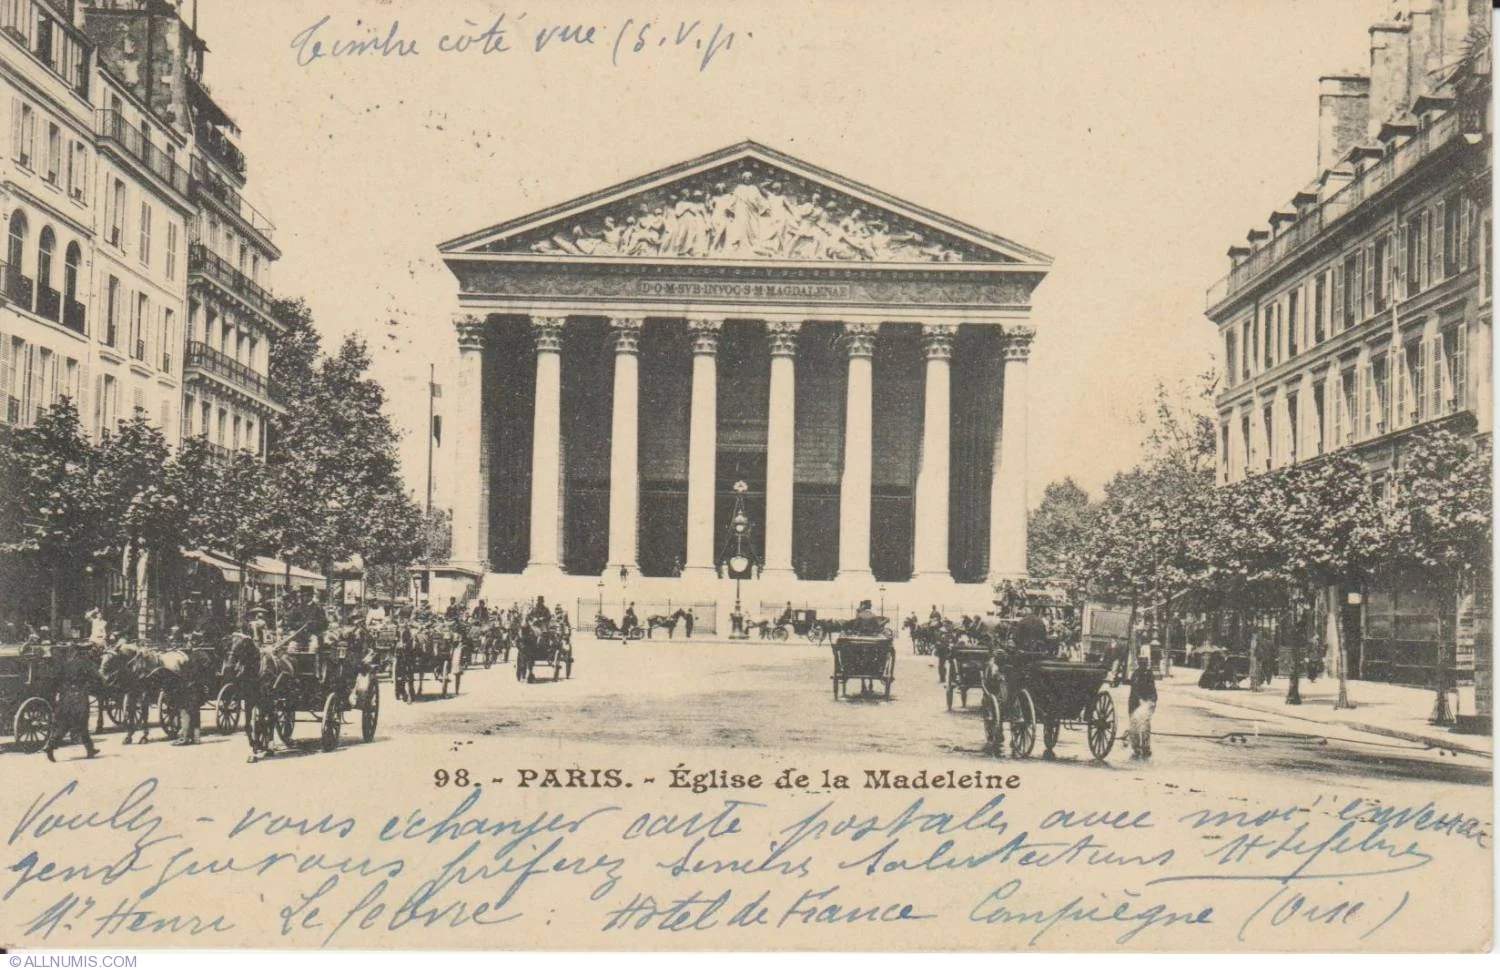 Timbre côté vue (S.V.p.
D·O·M·SVB·INVOC·S·M·MAGDALENAE
98. - PARIS. - Église de la Madeleine
Voulez-vous échanger carte postales avec moi
genr que vous préférez Salutations H Lefebvre
Mr Henri Lefebvre : Hotel de France Compiègne (Oise)
© ALLNUMIS.COM